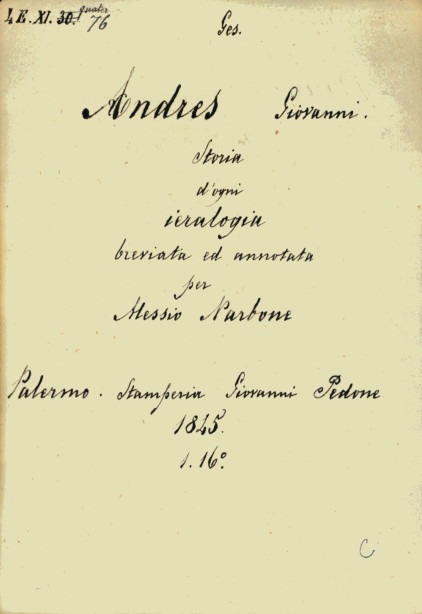 4 E. XI. 30. quater
76
Ges.
Andres Giovanni.
Storia
d'ogni
ieralogia
breviata ed annotata
per
Alessio Narbone
Palermo. Stamperia Giovanni Pedone
1845.
1. 16°.
C